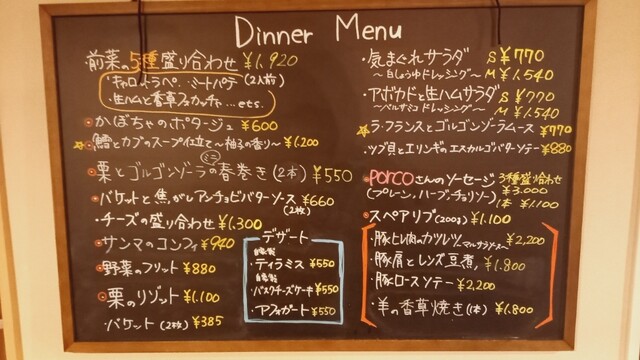 Dinner Menu
・前菜の5種盛り合わせ ¥1.920
キャロットラペ、ミートパテ (2人前)
・生ハムと香草フォカッチャ...ets.
・かぼちゃのポタージュ ¥600
・鱈とカブのスープ仕立て〜柚子の香り〜 ¥1.200
・栗とゴルゴンゾーラのミニ春巻き(2本) ¥550
・バケットと焦がしアンチョビバターソース ¥660
(2枚)
・チーズの盛り合わせ ¥1.300
・サンマのコンフィ ¥940
・野菜のフリット ¥880
・栗のリゾット ¥1.100
・バケット(2枚) ¥385
デザート
自家製
・ティラミス ¥550
自家製
・バスクチーズケーキ ¥550
・アフォガート ¥550
・気まぐれサラダ S ¥770
〜白しょうゆドレッシング〜 M ¥1.540
・アボカドと生ハムサラダ S ¥770
〜バルサミコドレッシング〜 M ¥1.540
・ラ・フランスとゴルゴンゾーラムース ¥770
・ツブ貝とエリンギのエスカルゴバターソテー ¥880
・porcoさんのソーセージ 3種盛り合わせ
(プレーン、ハーブ、チョリソー) ¥3.000
1本 ¥1.100
・スペアリブ(200g) ¥1.100
・豚ヒレ肉のカツレツ 〜マルサラソース〜 ¥2,200
・豚肩とレンズ豆煮 ¥1.800
・豚ロースソテー ¥2,200
・羊の香草焼き(1本) ¥1.800